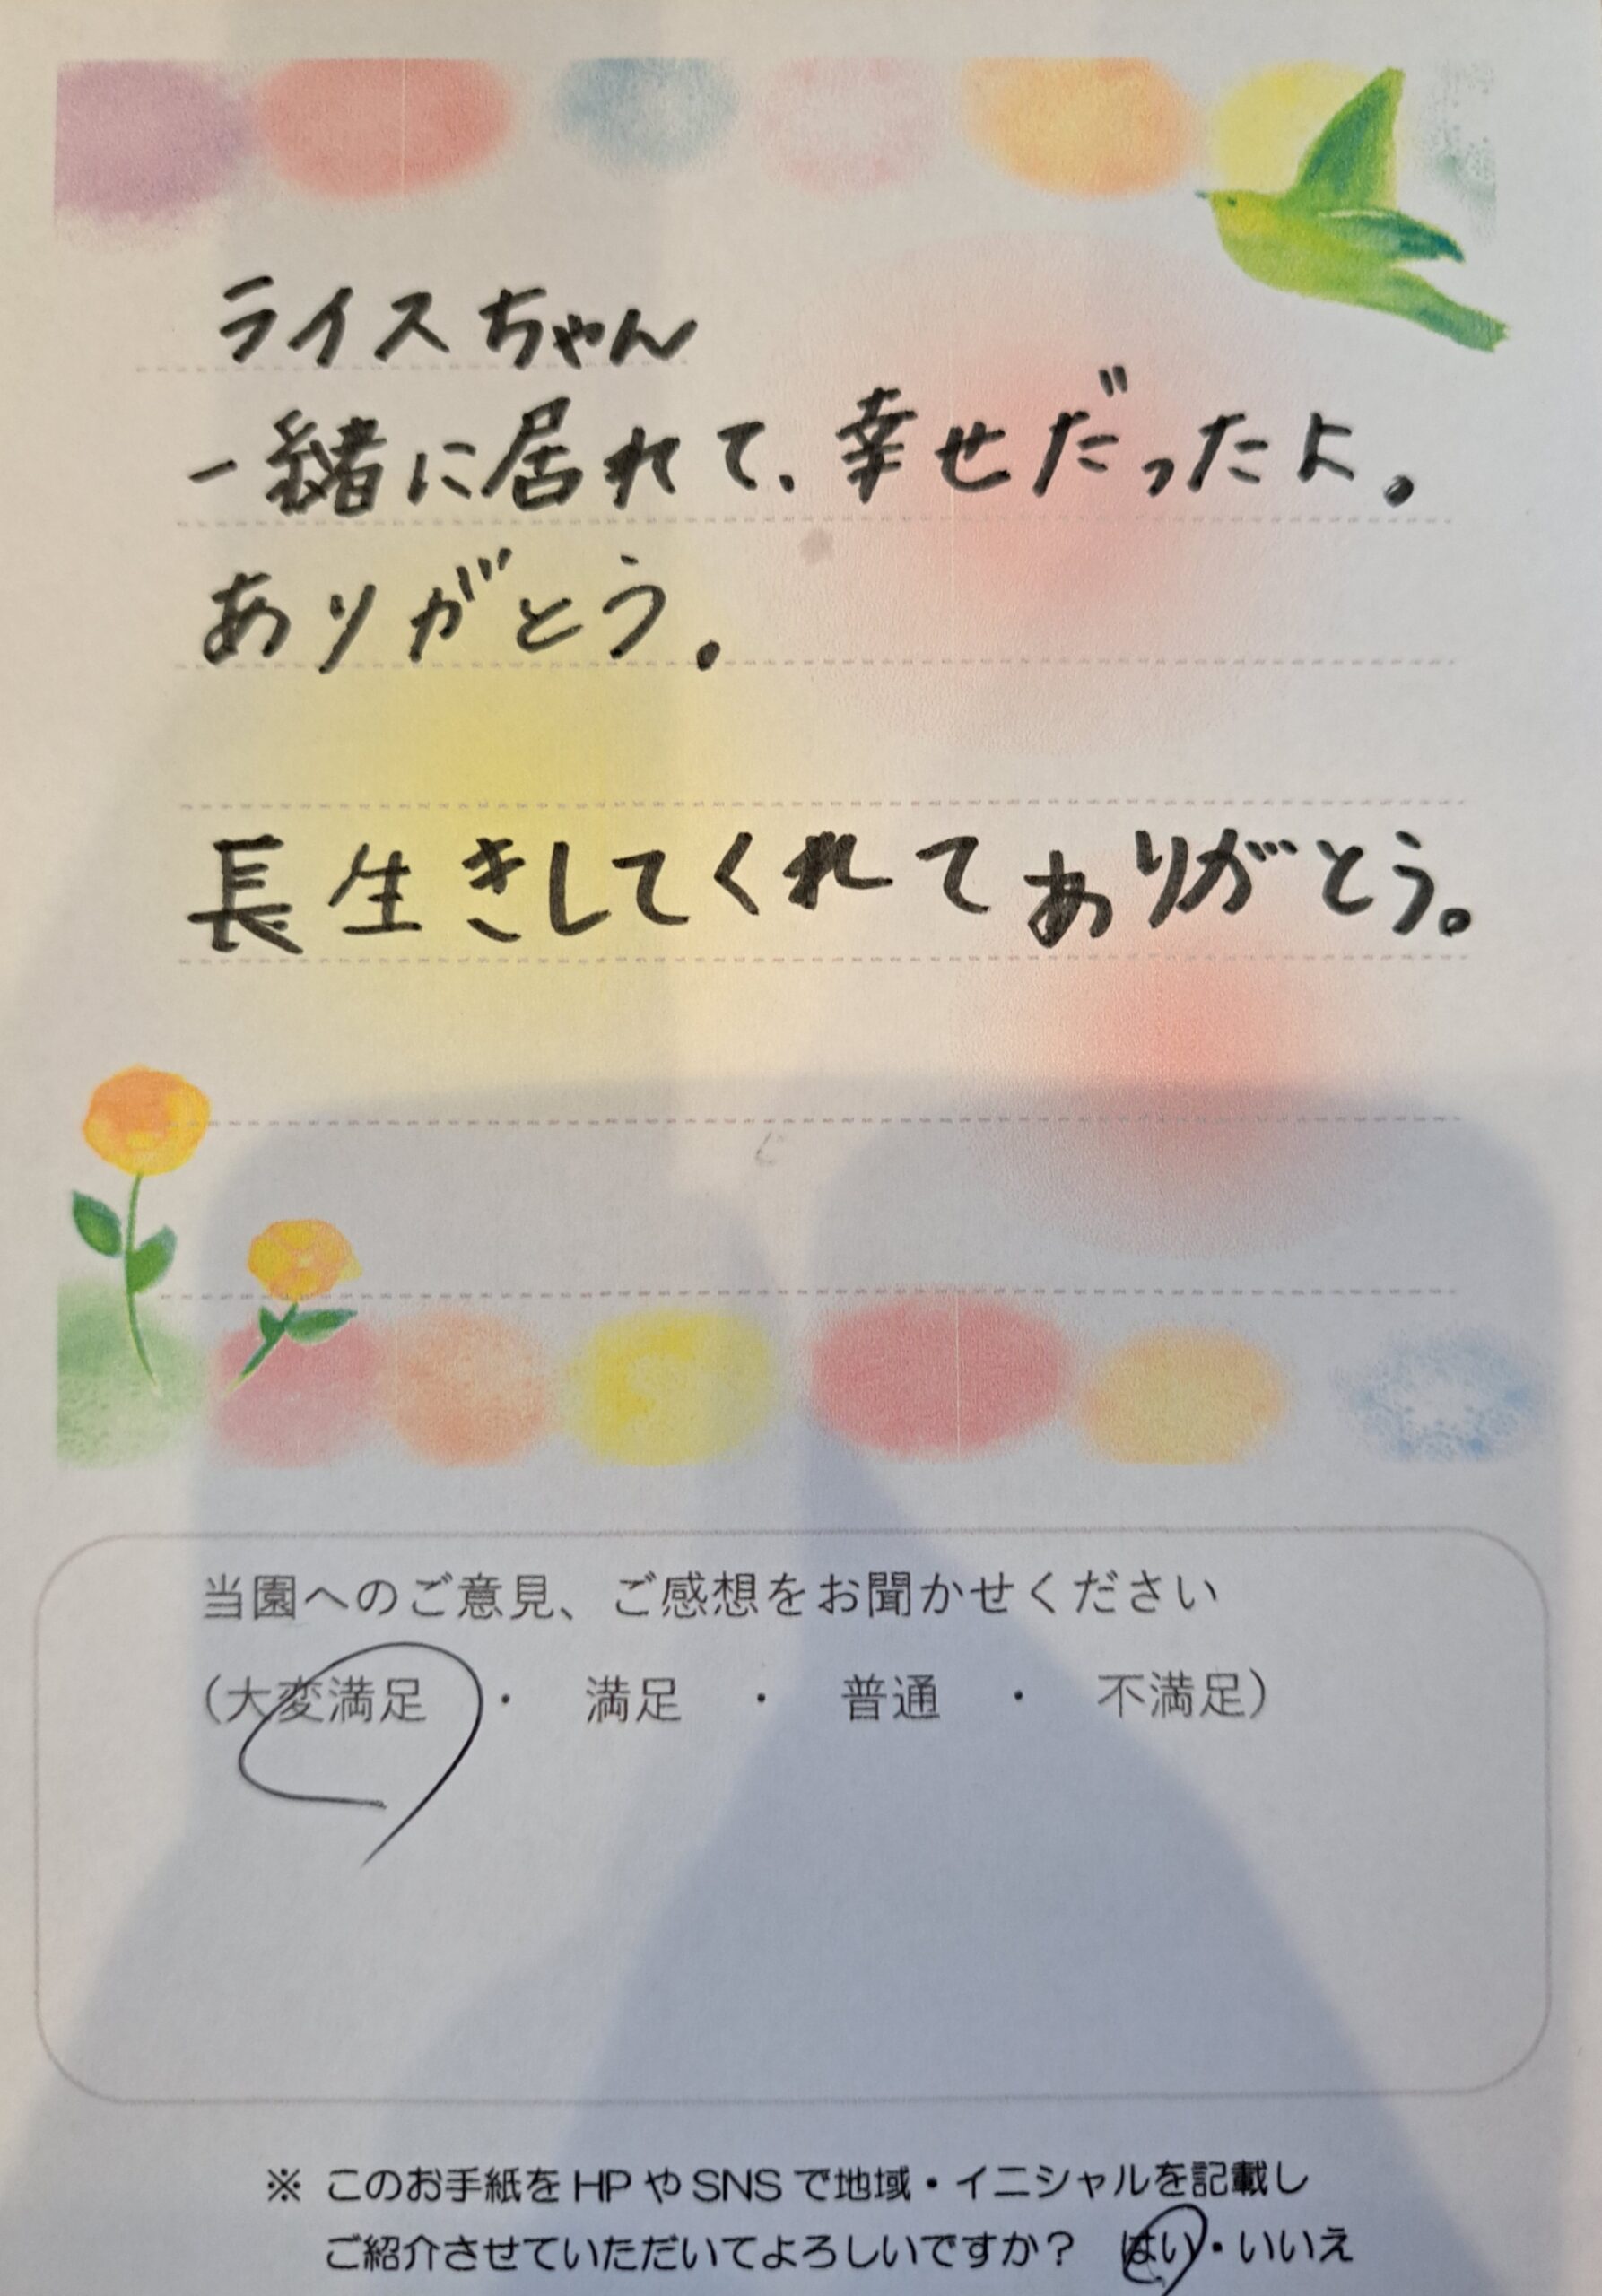 ライスちゃん
一緒に居れて、幸せだったよ。
ありがとう。
長生きしてくれてありがとう。
当園へのご意見、ご感想をお聞かせください
(大変満足 ・ 満足 ・ 普通 ・ 不満足)
※ このお手紙をHPやSNSで地域・イニシャルを記載し
ご紹介させていただいてよろしいですか? はい・いいえ